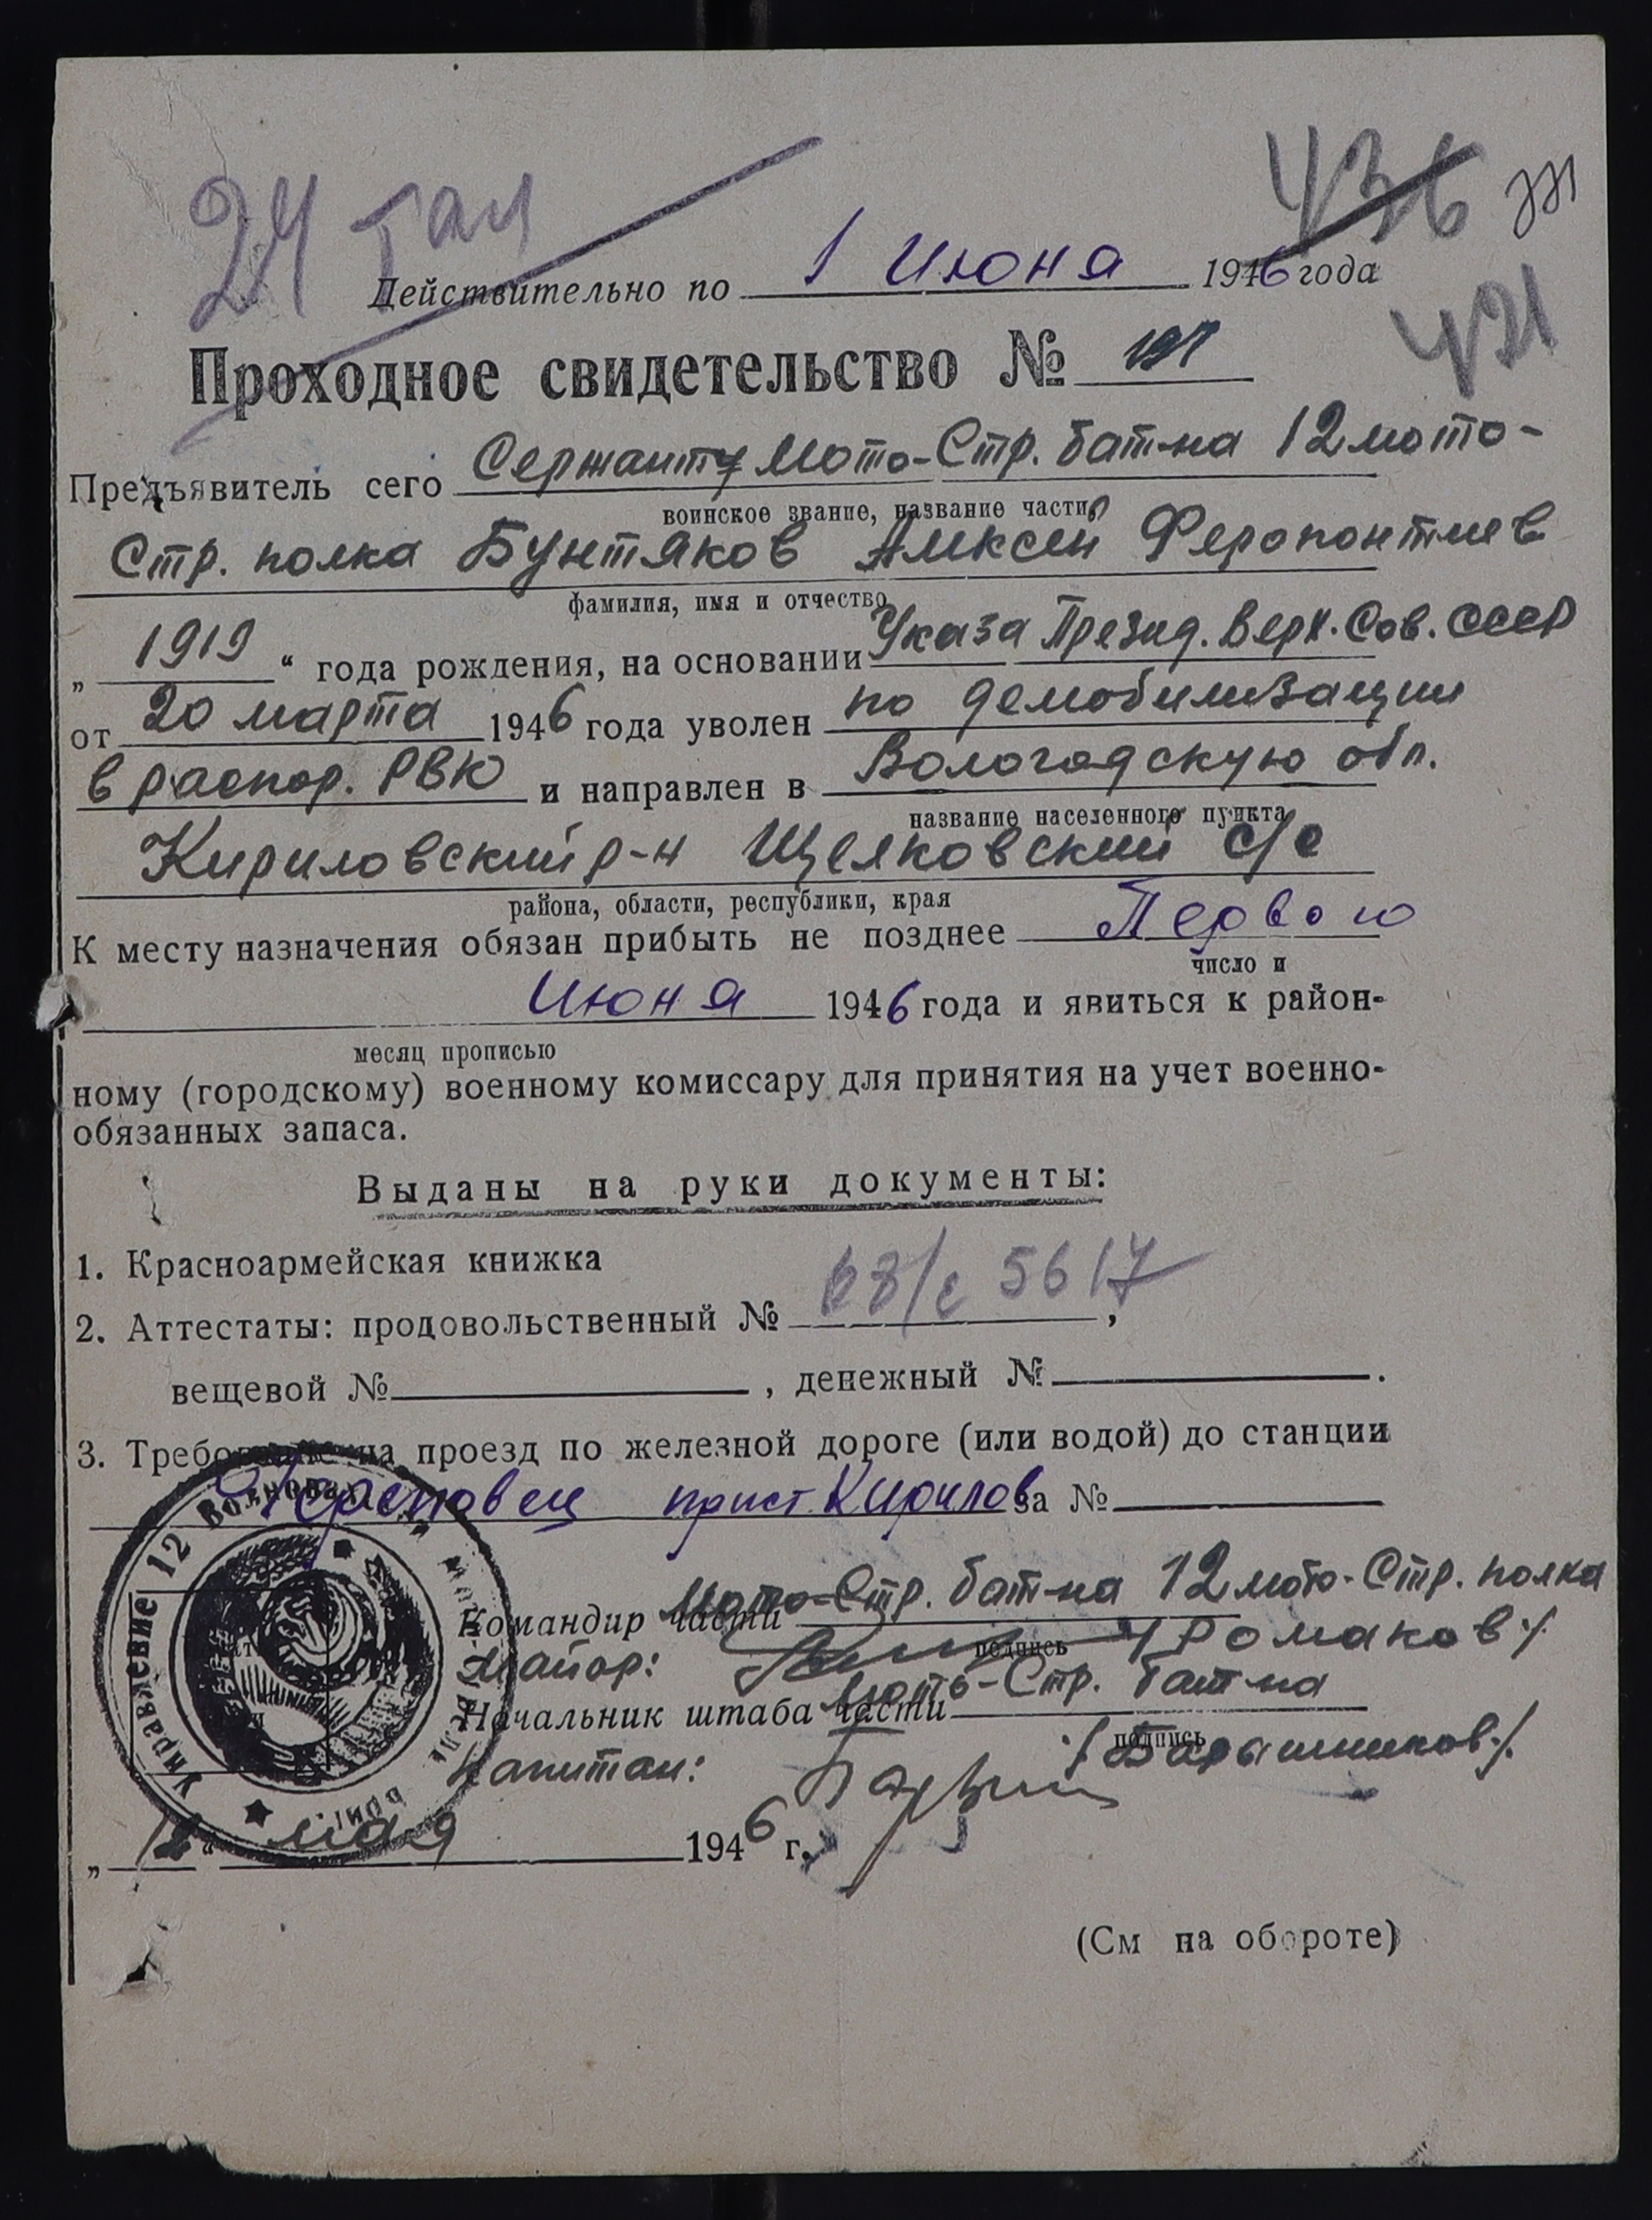 24
436
Действительно по 1 Июня 1946 года
421
Проходное свидетельство № 197
Предъявитель сего Сержанту Мото-Стр. бат-на 12 мото-
воинское звание, название части
Стр. полка Бунтяков Алексей Ферапонтиев
фамилия, имя и отчество
„ 1919 “ года рождения, на основании Указа Презид. Верх. Сов. СССР
от 20 марта 1946 года уволен по демобилизации
в распор. РВК и направлен в Вологодскую обл.
название населенного пункта
Кириловский р-н Щелковский с/с
района, области, республики, края
К месту назначения обязан прибыть не позднее Первого
число и
Июня 1946 года и явиться к район-
месяц прописью
ному (городскому) военному комиссару для принятия на учет военно-
обязанных запаса.
Выданы на руки документы:
1. Красноармейская книжка
2. Аттестаты: продовольственный № 5617,
вещевой № , денежный № .
3. Требование на проезд по железной дороге (или водой) до станции
Череповец прист. Кирилов за №
Управление 12
Мото-Стр. бат-на 12 мото-Стр. полка
Командир части
подпись
Майор: /Ромаков/
Мото-Стр. бат-на
Начальник штаба части
подпись
Капитан: /Барышников/
„ 12 “ мая 1946 г.
(См на обороте)